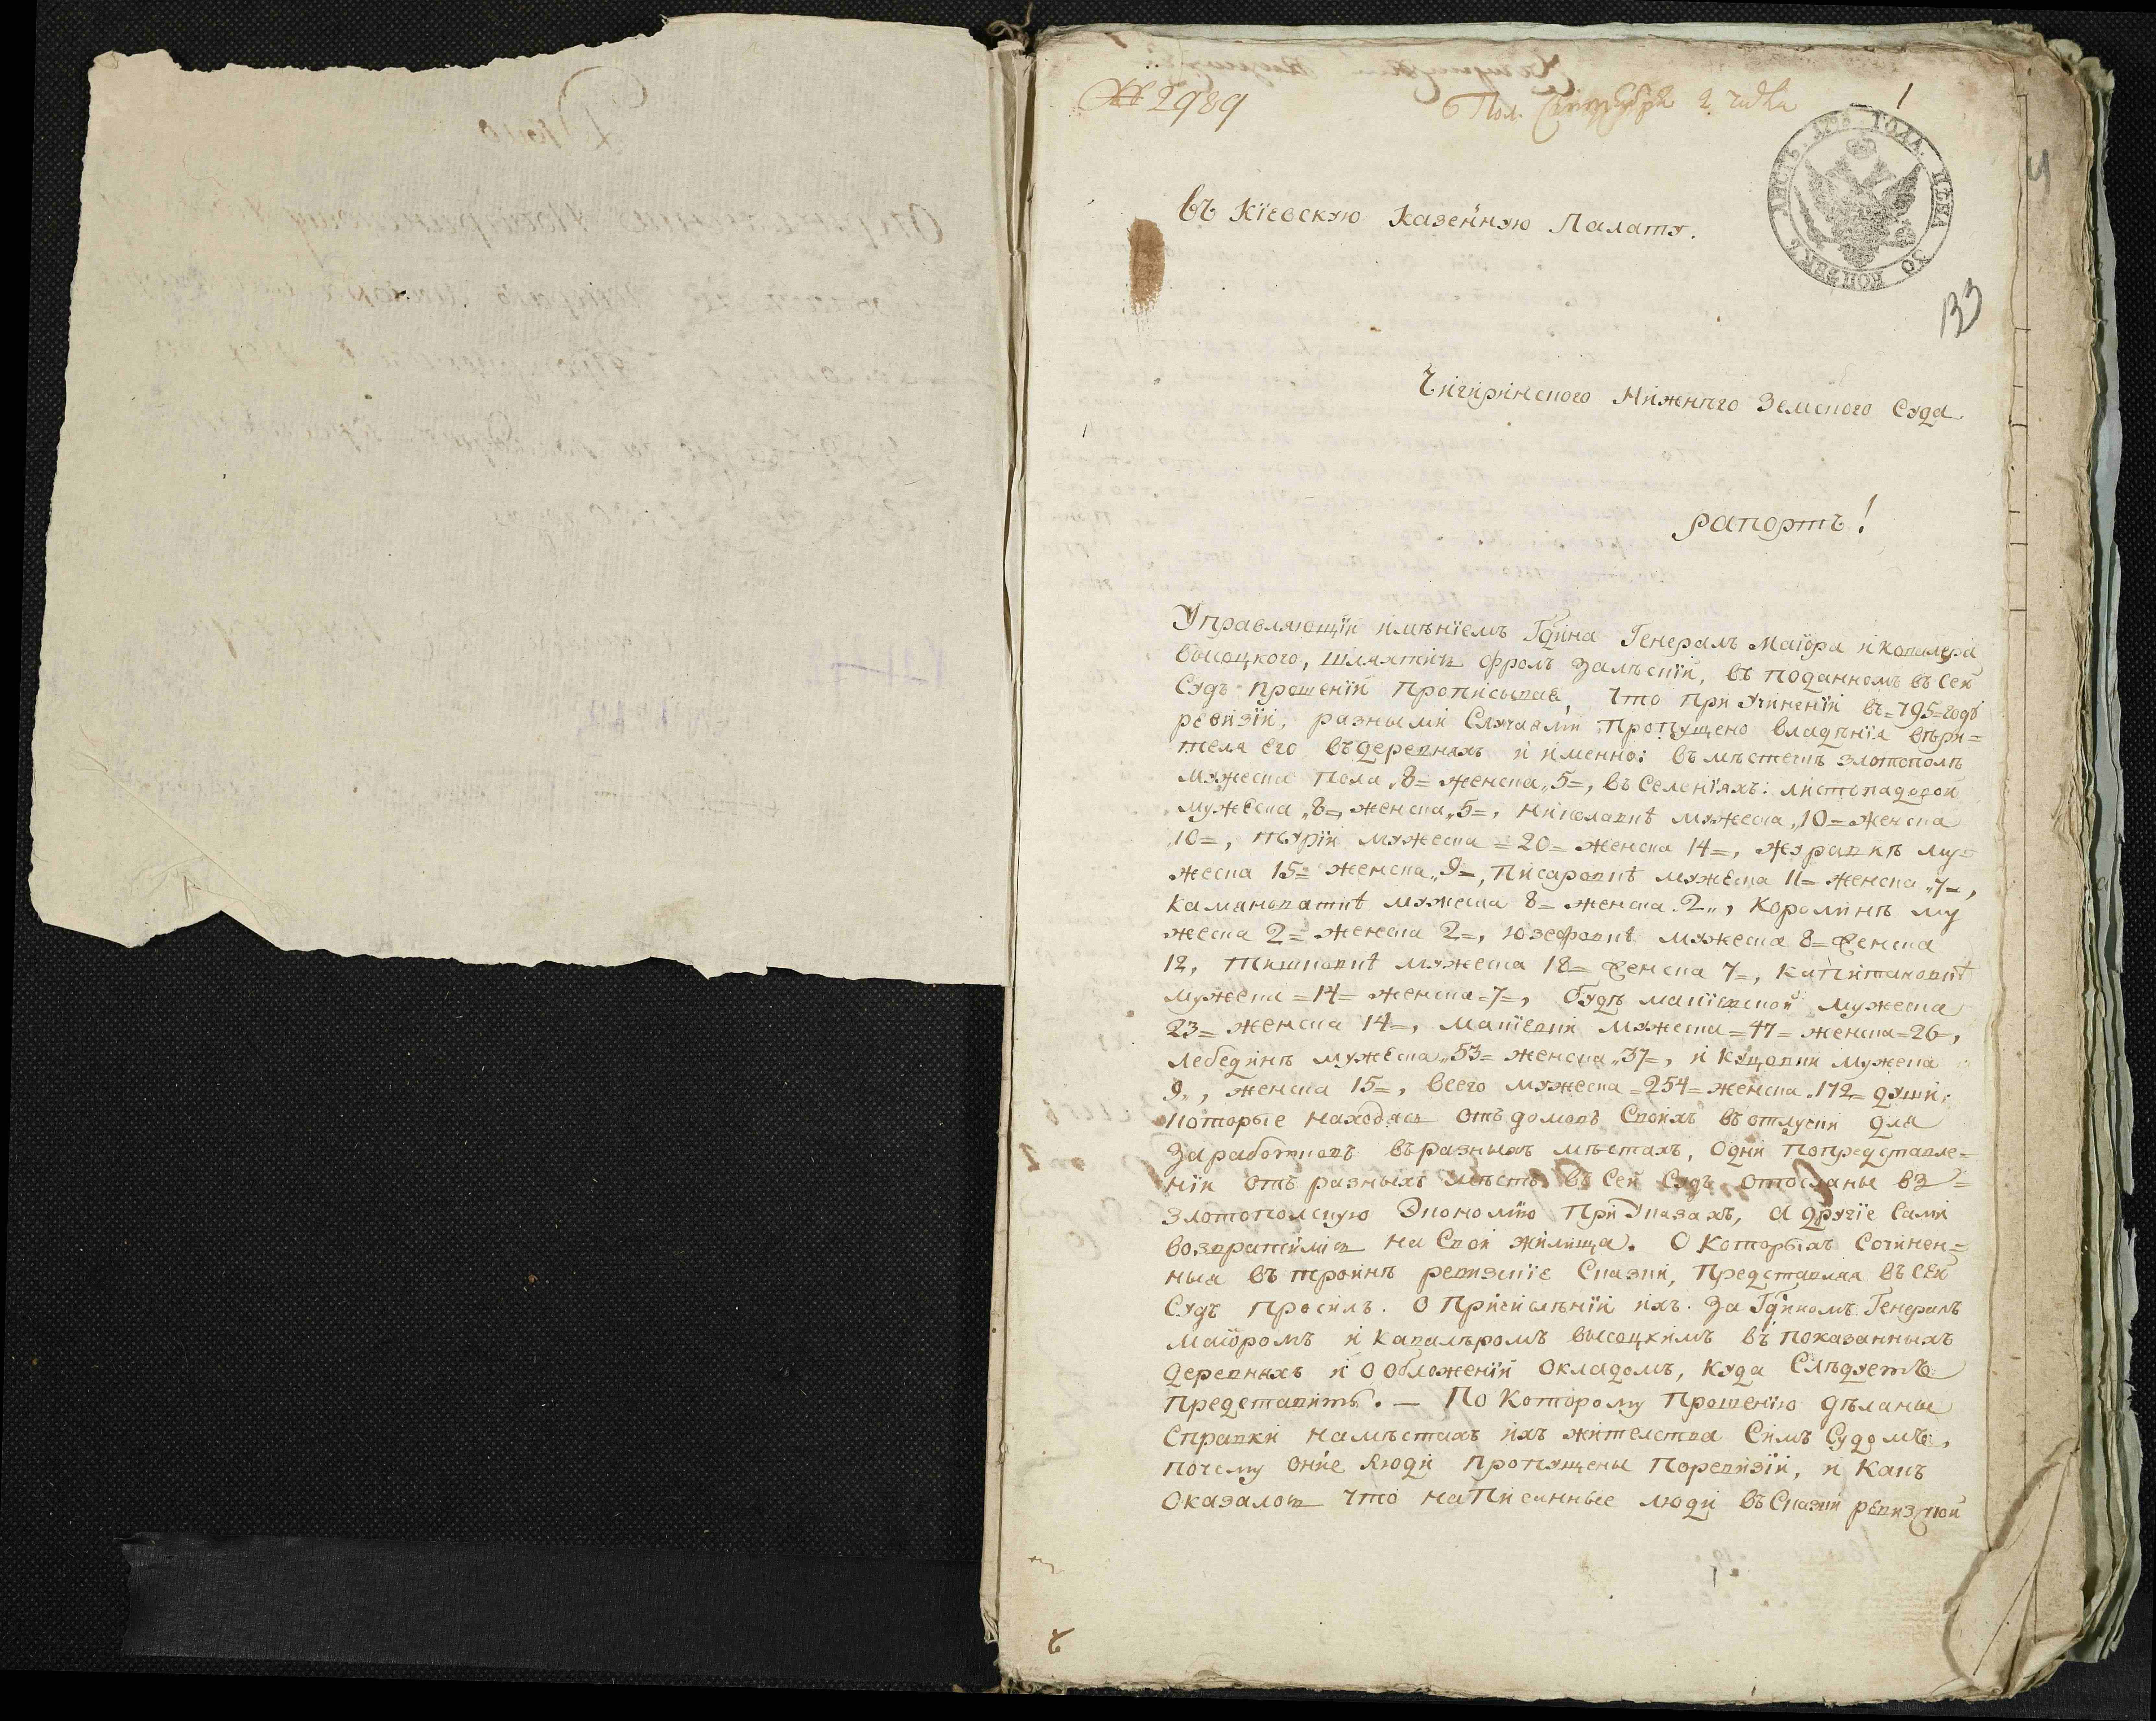 № 2989
Пол. Сентября 2 числа
1
4
133
ЛИСТЪ. 179 ГОДА. ЦѢНА 30 КОПѢЕКЪ
въ Кіевскую казенную Палату.
Чигиринского Нижнего Земского Суда
рапортъ!
Управляющій имѣніемъ Гдина Генералъ Маіора и Кавалера
высоцкого, шляхтичъ Фролъ Залѣскій, въ поданномъ въ Сей
Судъ прошеніи прописывая, что при учиненіи въ =795= годѣ
ревизіи, разными Случаями пропущено владѣнія вѣри=
теля его въ деревняхъ и именно: въ мѣстечкѣ злотополѣ
мужеска пола „8= женска „5=, въ Селеніяхъ: листопадовой
мужеска „8=, женска „5=, Николаевкѣ мужеска „10= женска
„10=, турій мужеска =20= женска 14=, журавкѣ му=
жеска 15= женска „9=, Писаревкѣ мужеска 11= женска „7=,
Каменоваткѣ мужеска 8= женска 2„, Королинѣ му
жеска 2= женска 2=, юзефовкѣ мужеска 8= женска
12, Тишковкѣ мужеска 18= женска 7=, Капитановкѣ
мужеска =14= женска =7=, будѣ макіевской мужеска
23= женска 14=, макіевки мужеска =47= женска =26=,
лебединѣ мужеска „53= женска „37=, и Куцовки мужеска
9„, женска 15=, всего мужеска =254= женска „172= души,
которые находясь отъ домовъ Своихъ въ отлуски для
Заработковъ въ разныхъ мѣстахъ, одни по представле=
ніи отъ разныхъ мѣстъ въ Сей Судъ отосланы въ =
Злотополскую Экономію при Указахъ, а другіе Сами
возвратились на Свои жилища. О Которыхъ Сочинен=
ныя въ тройнѣ ревизскіе Сказки, представляя въ Сей
Судъ просилъ. О причисленіи ихъ. За Гдиномъ Генералъ
маіоромъ и кавалеромъ высоцкимъ въ показанныхъ
деревняхъ и о обложеніи окладомъ, куда Слѣдуетъ
представить. — По Которому прошенію дѣланы
Справки на мѣстахъ ихъ жителства Симъ Судомъ,
почему оние люди пропущены по ревизіи, и Какъ
оказалось что написанные люди въ Сказки ревизкой